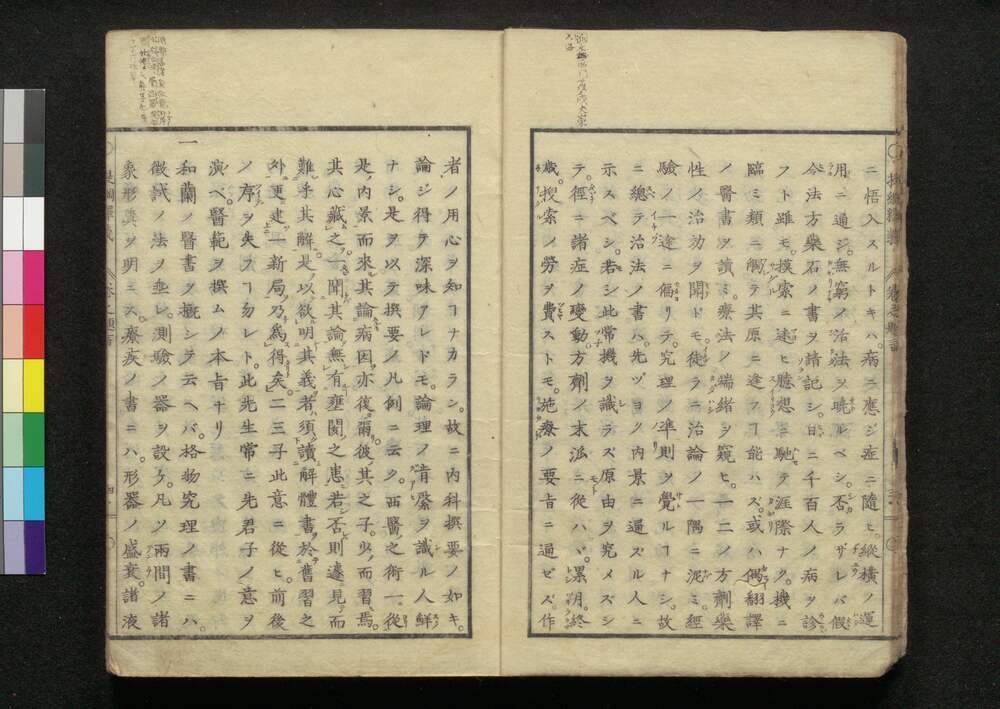 ニ悟入スルトキハ。病ニ應ジ症ニ隨ヒ。縱横ノ運
用ニ通ジ。無窮ノ治法ヲ曉ルベシ。否ラザレバ假
令法方藥石ノ書ヲ諳記シ。日ニ千百人ノ病ヲ診
フト雖モ。摸索ニ迷ヒ臆想ニ馳テ涯際ナク。機ニ
臨ミ類ニ觸テ其原ニ逢フヿ能ハズ。或ハ偶翻譯
ノ醫書ヲ讀ミ。療法ノ端緒ヲ窺ヒ。一二ノ方劑藥
性ノ治効ヲ聞ドモ。徒ラニ治論ノ一隅ニ泥ミ。經
驗ノ一途ニ偏リテ。究理ノ準則ヲ覺ルヿナシ。故
ニ總テ治法ノ書ハ。先ヅヨク内景ニ通ズル人ニ
示スベシ。若シ此常機ヲ識ラズ原由ヲ究メズシ
テ。徑ニ諸症ノ變動方劑ノ末派ニ從ハヾ。累月終
歳。搜索ノ勞ヲ費ストモ。施療ノ要旨ニ通ゼズ。作
者ノ用心ヲ知ヿナカラン。故ニ内科撰要ノ如キ。
論ジ得テ深味アレドモ。論理ノ肯綮ヲ識ル人鮮
ナシ。是ヲ以テ撰要ノ凡例ニ云ク。西醫之術一從
是内景而來。其論病因亦復爾。彼其之子。少而習焉。
其心藏之。一聞其論無有壅閡之患。若否則遽見而
難乎其解。是以欲明其義者。須讀解體書。於舊習之
外。更建一新局。乃爲得矣。二三子此意ニ從ヒ。前後
ノ序ヲ失フヿ勿レト。此先生常ニ先君子ノ意ヲ
演ベ。醫範ヲ撰ムノ本旨ナリ
一和蘭ノ醫書ヲ概シテ云ヘバ。格物究理ノ書ニハ。
徴試ノ法ヲ垂レ。測驗ノ器ヲ設ケ。凡ソ兩間ノ諸
象形類ヲ明ニス。療疾ノ書ニハ。形器ノ盛衰。諸液